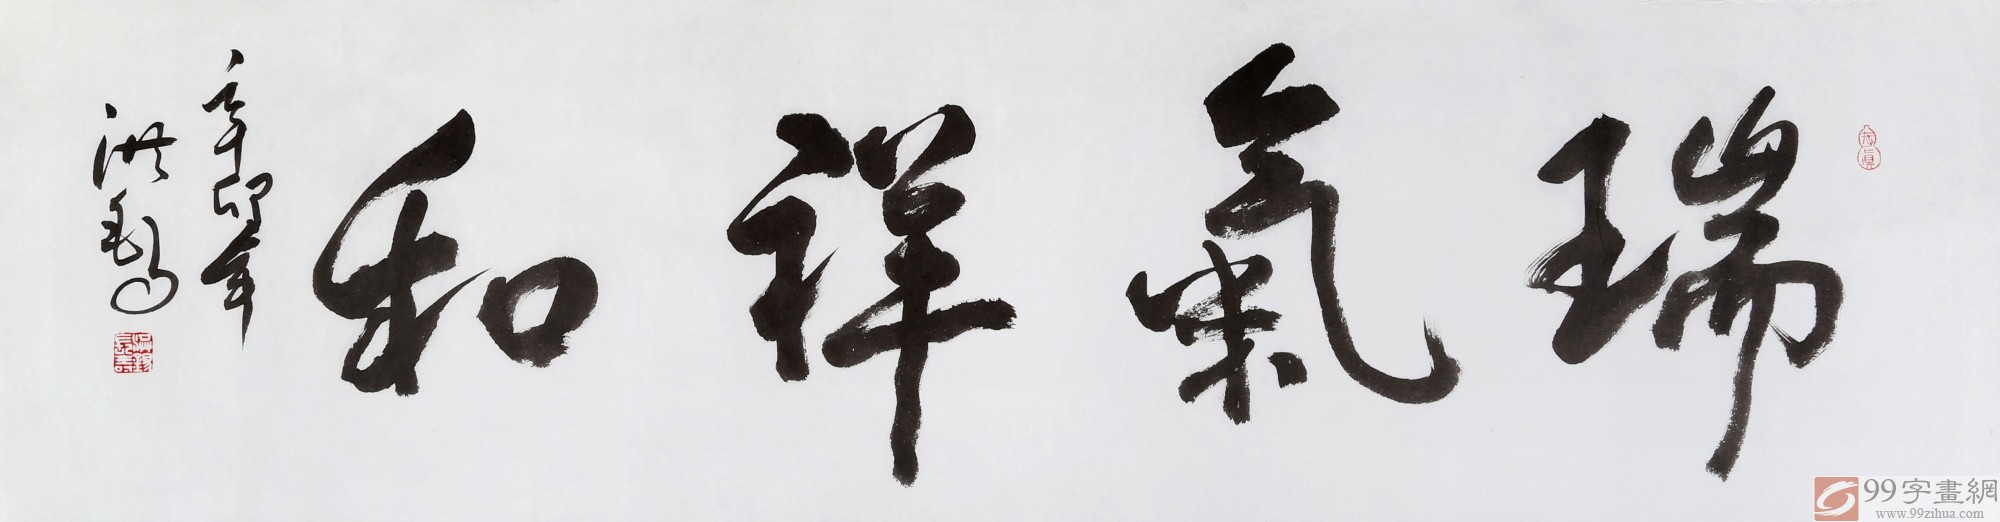 瑞氣祥和
辛卯年
洪
99字畫網
www.99zihua.com